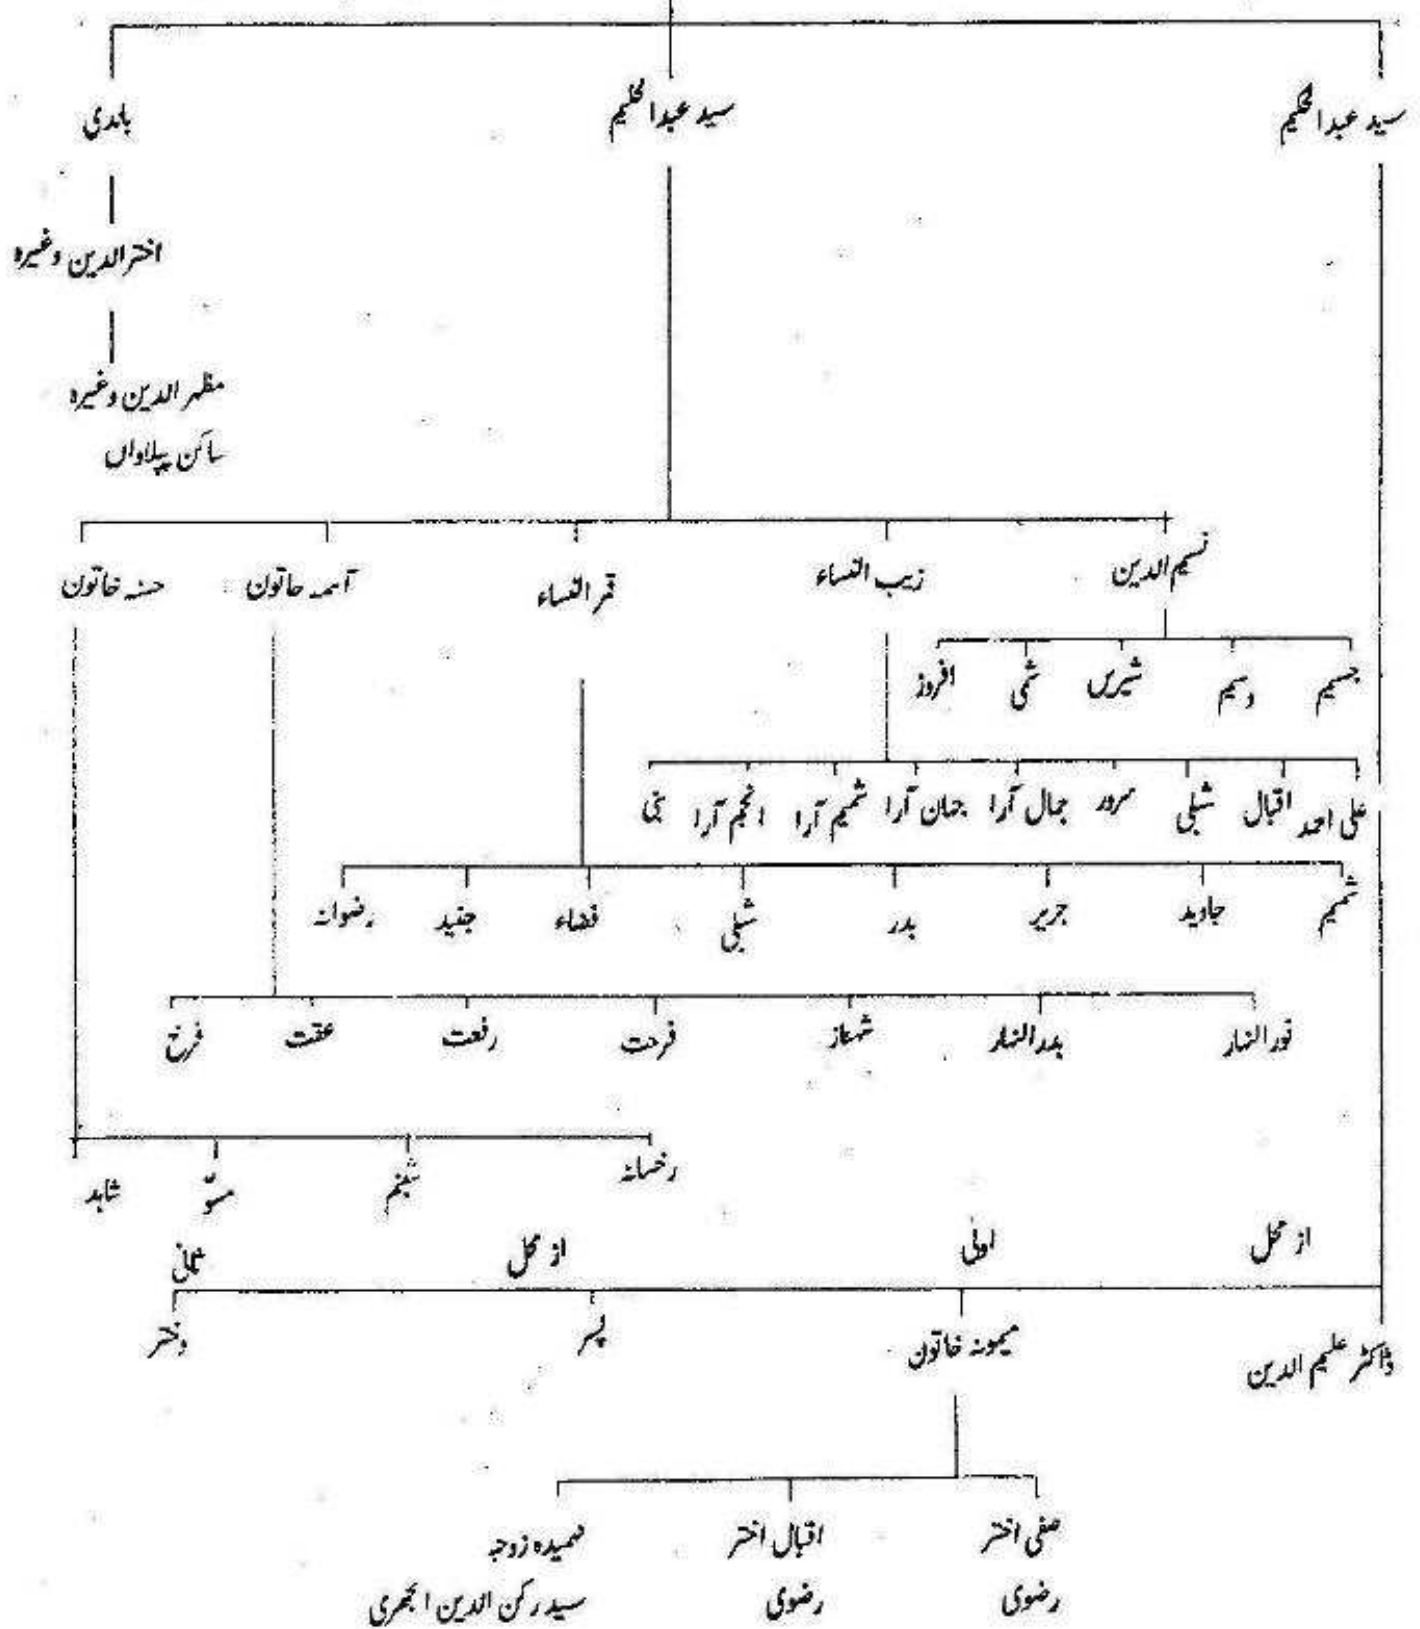 سید عبدالحکیم سید عبدالحلیم باندی
اختر الدین وغیرہ
مظہر الدین وغیرہ
ساکن پیلاواں
نسیم الدین زیب النساء قمر النساء آسمہ خاتون حسنہ خاتون
جسیم وسیم شیریں شمی افروز
علی احمد اقبال شبلی سرور جمال آرا جہان آرا شمیم آرا انجم آرا نبی
شمیم جاوید جریر بدر شبلی فضاء جنید رضوانہ
نور النہار بدر النہار شہناز فرحت رفعت عفت فرخ
رخسانہ شبنم مسوّ شاہد
از محل اولی از محل ثانی
ڈاکٹر علیم الدین میمونہ خاتون پسر دختر
صفی اختر اقبال اختر فہمیدہ زوجہ
رضوی رضوی سید رکن الدین انجھری